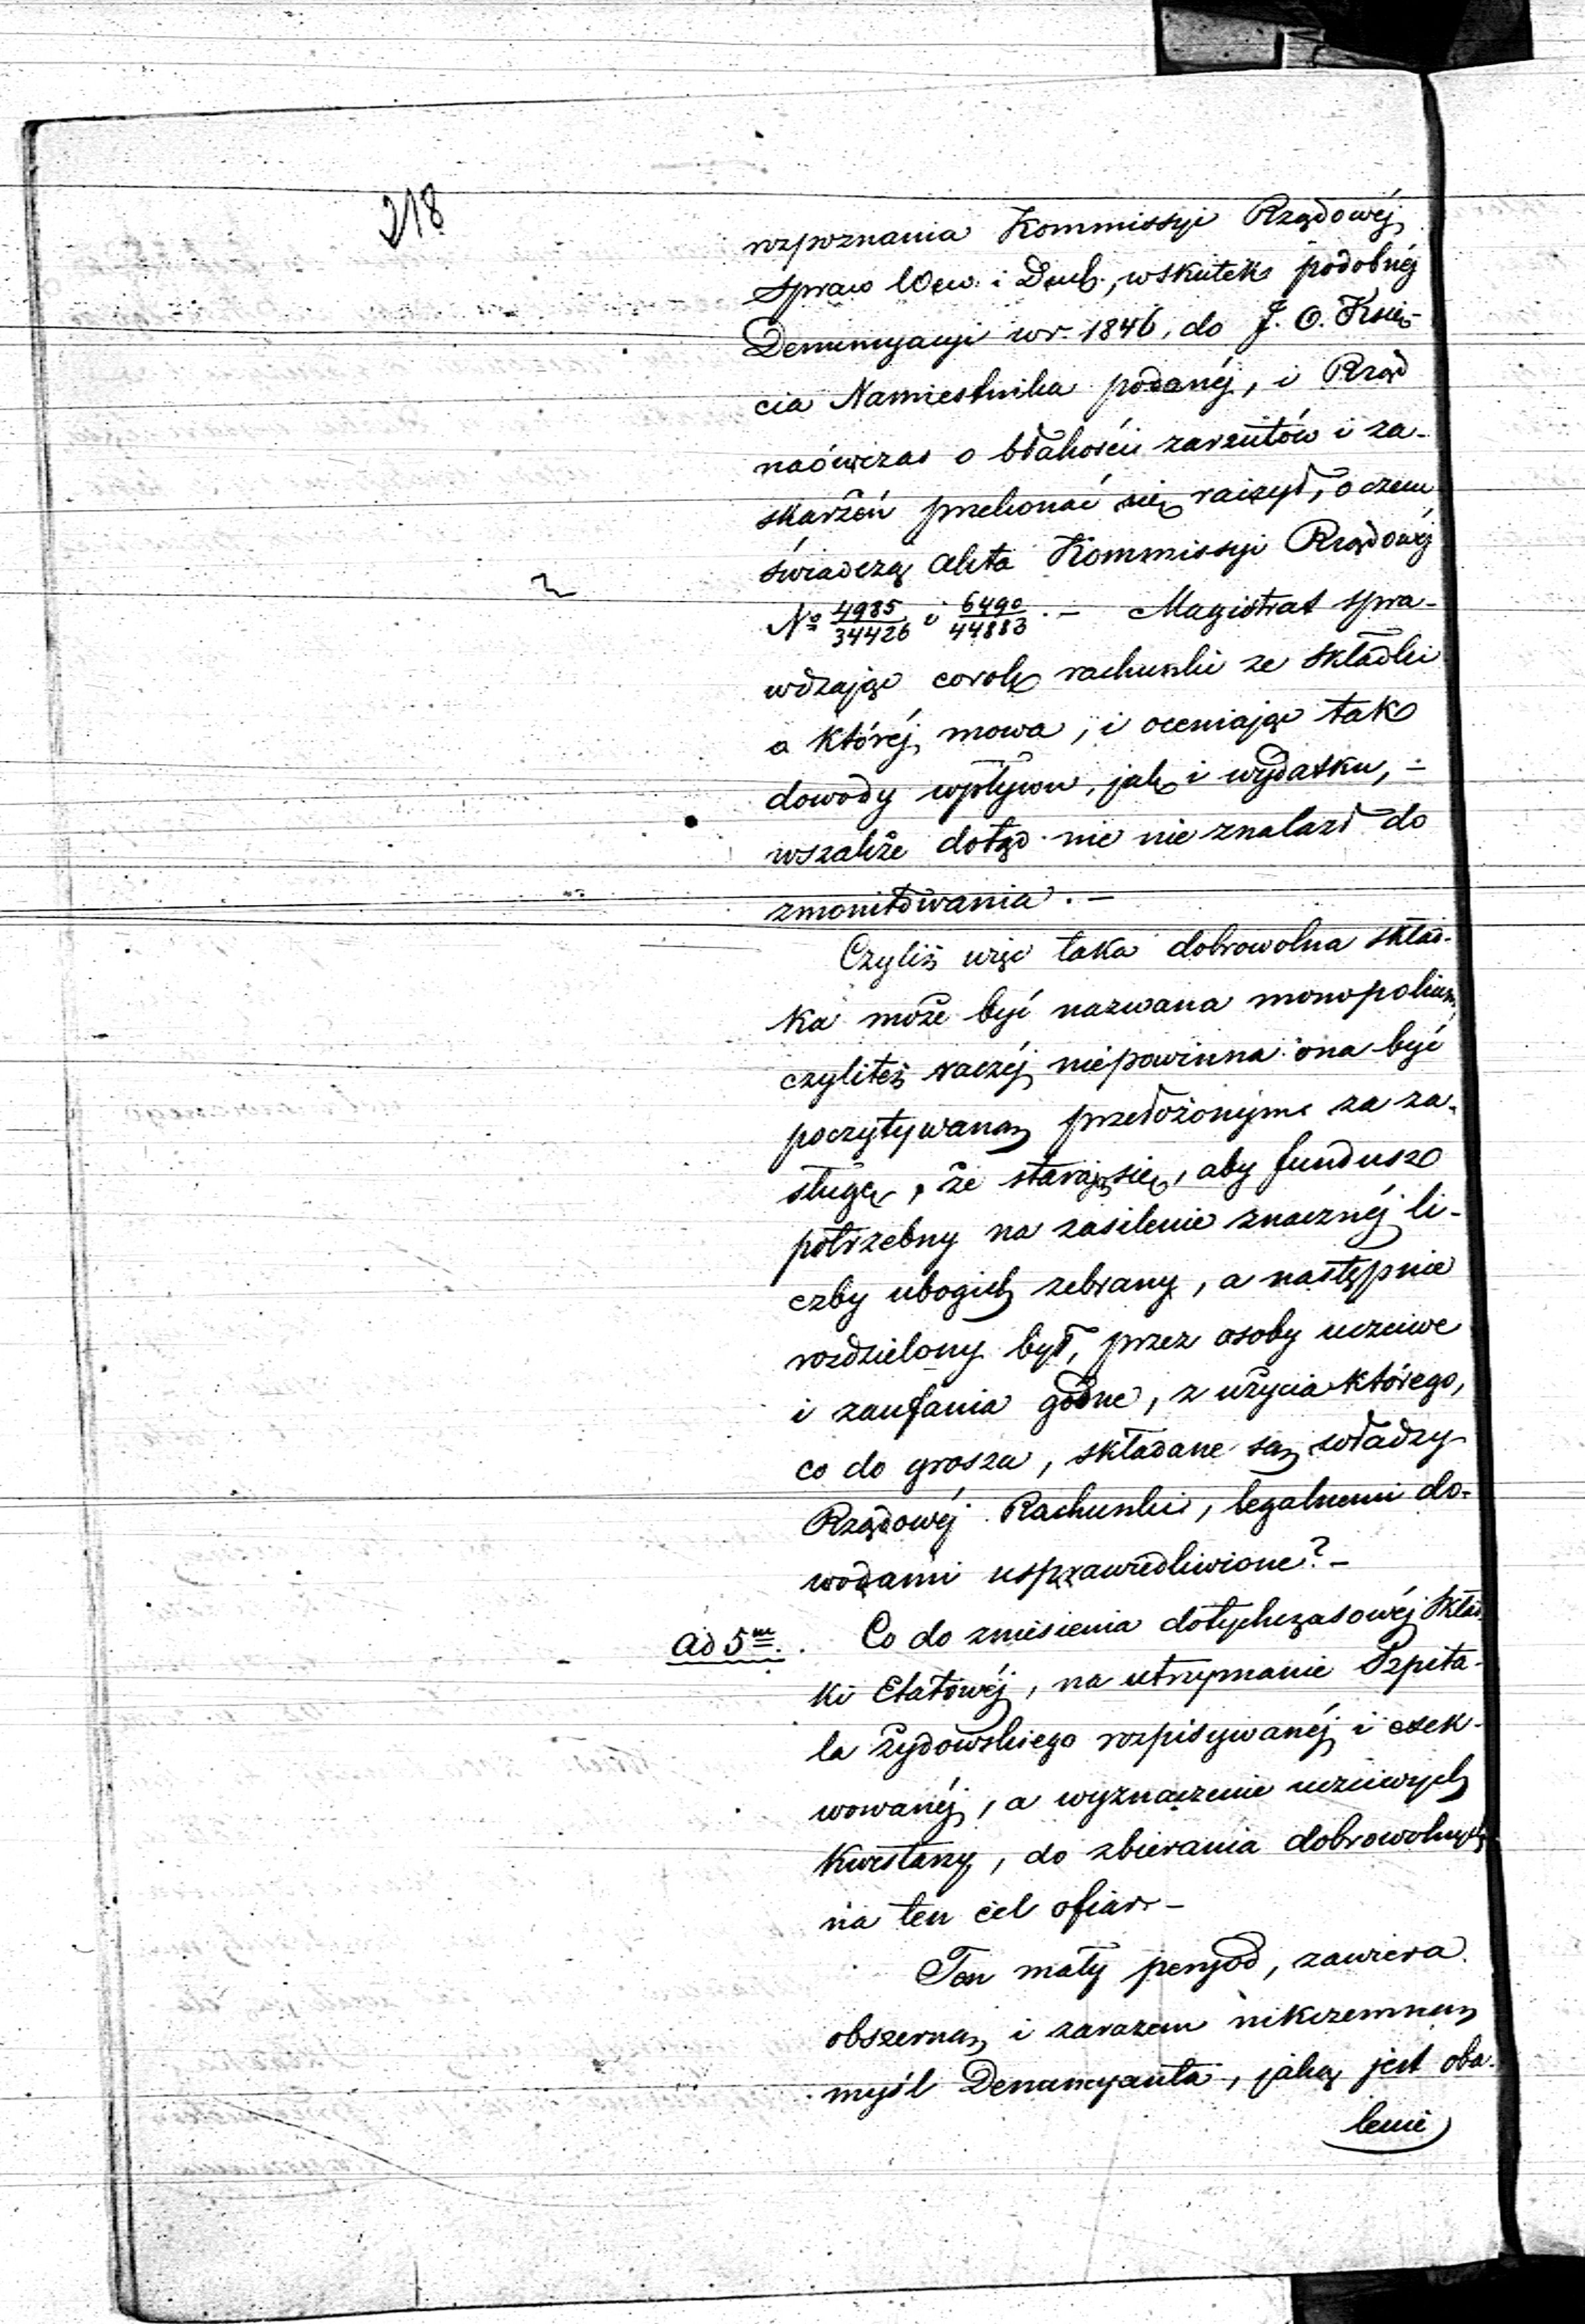 218
rozpoznania Kommissyi Rządowéj
Spraw Wew. i Duch., wskutek podobnéj
Denuncyacyi w r. 1846, do J. O. Księ-
cia Namiestnika podanéj, i Rząd
naówczas o błahości zarzutów i za-
skarżeń przekonać się raczył, o czem
świadczą Akta Kommissyi Rządowéj
№ 4985/34426 i 6490/44883. – Magistrat spra-
wdzając corok rachunki ze składki
o któréj mowa, i oceniając tak
dowody wpływu, jak i wydatku, –
wszakże dotąd nic nie znalazł do
zmonitowania. –
Czyliż więc taka dobrowolna skład-
ka może być nazwana monopolium,
czyliteż raczéj niepowinna ona być
poczytywaną przełożonym za za-
sługę, że starają się, aby fundusz
potrzebny na zasilenie znacznéj li-
czby ubogich zebrany, a następnie
rozdzielony był, przez osoby uczciwe
i zaufania godne, z użycia którego,
co do grosza, składane są władzy
Rządowéj Rachunki, legalnemi do-
wodami usprawiedliwione? –
Ad 5m. Co do zniesienia dotychczasowéj Skład-
ki Etatowéj, na utrzymanie Szpita-
la żydowskiego rozpisywanéj i exek-
wowanéj, a wyznaczenie uczciwych
Kwestarzy, do zbierania dobrowolnych
na ten cel ofiar –
Ten mały peryod, zawiera
obszerną i zarazem nikczemną
myśl Denuncyanta, jaką jest oba-
lenie